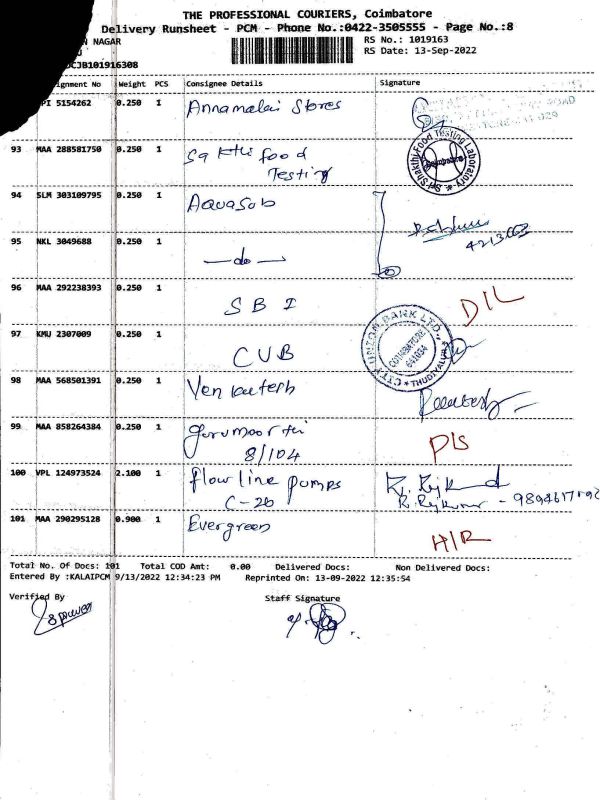 THE PROFESSIONAL COURIERS, Coimbatore
Delivery Runsheet - PCM - Phone No.:0422-3505555 - Page No.:8
NAGAR
RS No.: 1019163
RS Date: 13-Sep-2022
CJB101916308
ignment No Weight PCS Consignee Details Signature
PI 5154262 0.250 1 Annamalai Stores
93 MAA 288581750 0.250 1 Sakthi food
Testing
Sri Shakthi Food Testing Laboratory
Coimbatore
94 SLM 303109795 0.250 1 Aquasub
95 NKL 3049688 0.250 1 —do—
96 MAA 292238393 0.250 1 SBI D/L
97 KMU 2307009 0.250 1 CUB
CITY UNION BANK LTD.,
COIMBATORE
641034
* THUDIYALUR *
98 MAA 568501391 0.250 1 Venkatesh
99 MAA 858264384 0.250 1 gurumoorthi
8/104
P/S
100 VPL 124973524 2.100 1 flow line pumps
C-26
R. Rajkumar
101 MAA 290295128 0.900 1 Evergreen H/R
Total No. Of Docs: 101 Total COD Amt: 0.00 Delivered Docs: Non Delivered Docs:
Entered By :KALAIPCM 9/13/2022 12:34:23 PM Reprinted On: 13-09-2022 12:35:54
Verified By Staff Signature